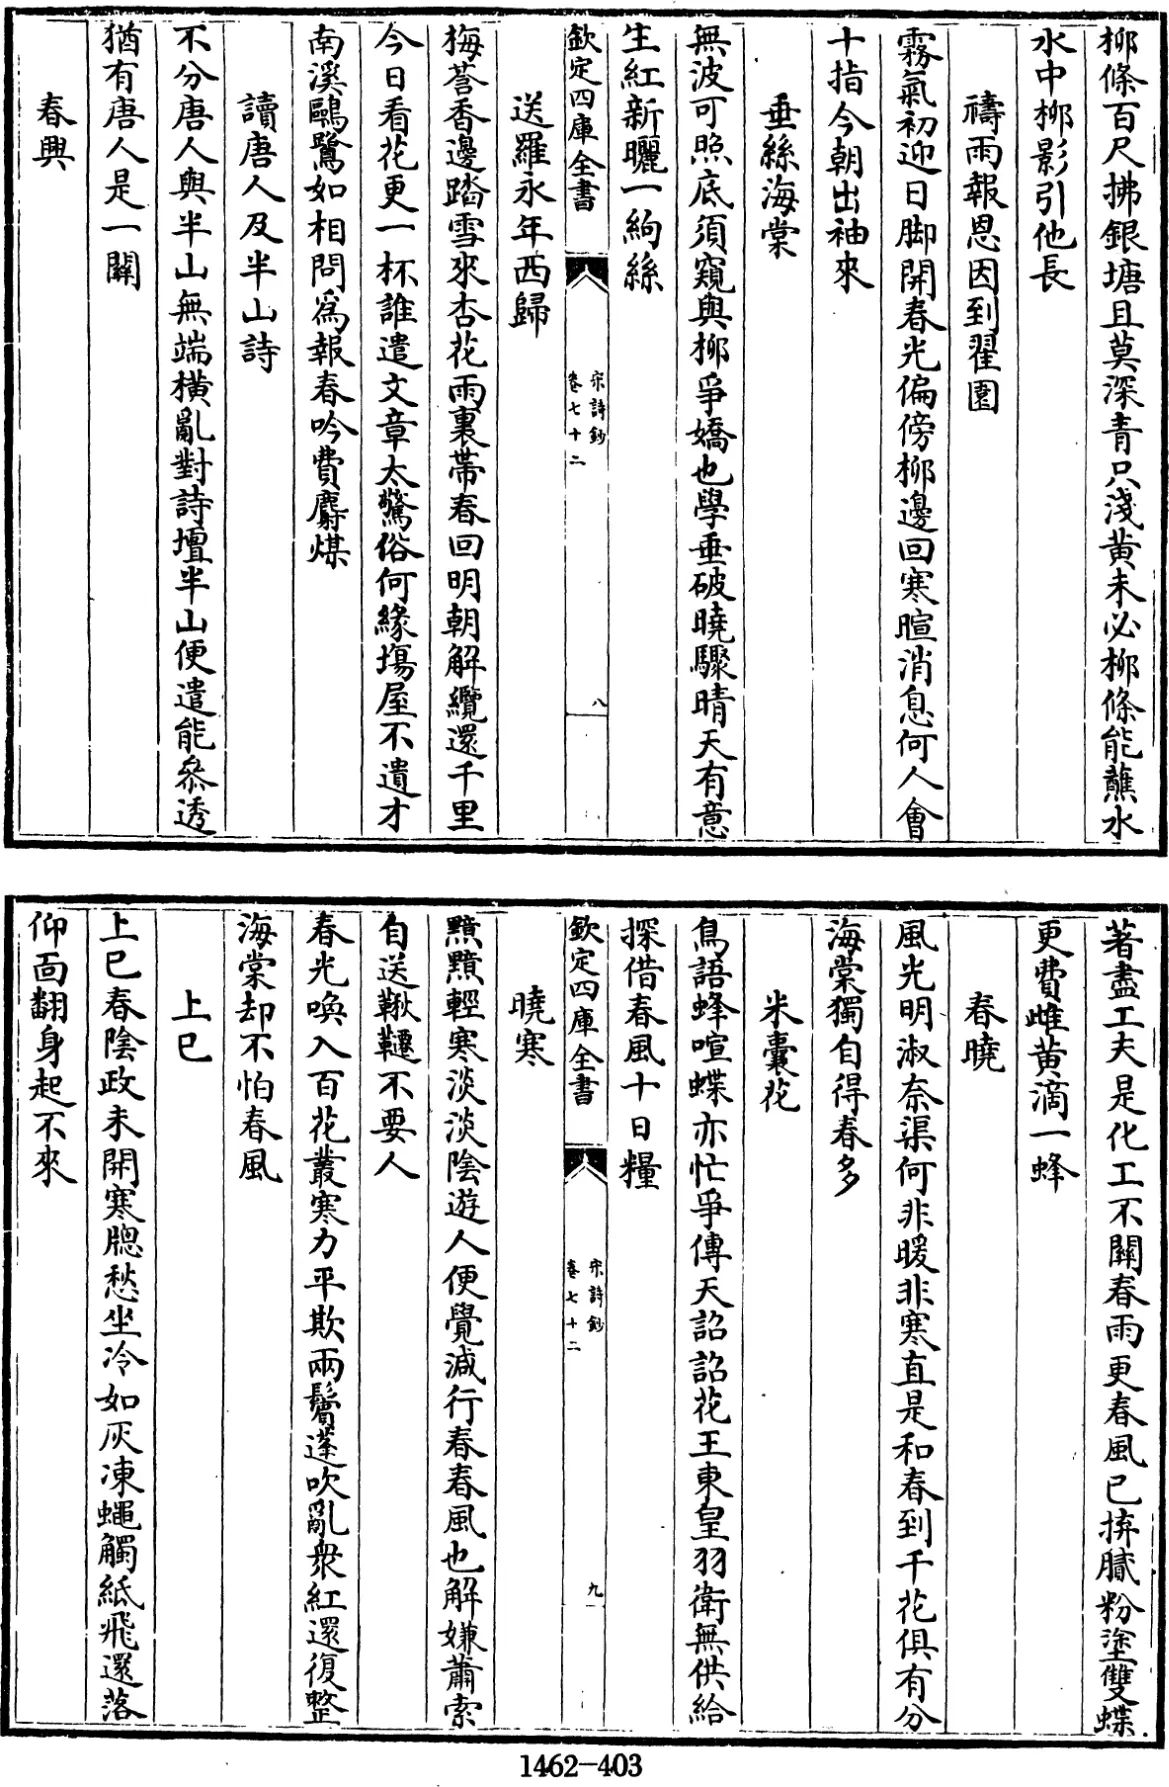 柳條百尺拂銀塘且莫深青只淺黄未必柳條能蘸水
水中柳影引他長
禱雨報恩因到翟園
霧氣初迎日脚開春光偏傍柳邊回寒暄消息何人會
十指今朝出袖來
垂絲海棠
無波可照底須窺與柳爭嬌也學垂破曉驟晴天有意
生紅新曬一絇絲
欽定四庫全書
宋詩鈔
卷七十二
八
送羅永年西歸
梅蒼香邊踏雪來杏花雨裏帶春回明朝解纜還千里
今日看花更一杯誰遣文章太驚俗何緣塲屋不遺才
南溪鷗鷺如相問爲報春吟費麝煤
讀唐人及半山詩
不分唐人與半山無端横亂對詩壇半山便遣能叅透
猶有唐人是一關
春興
著盡工夫是化工不關春雨更春風已拚膩粉塗雙蝶
更費雌黄滴一蜂
春曉
風光明淑奈渠何非暖非寒直是和春到千花俱有分
海棠獨自得春多
米囊花
鳥語蜂喧蝶亦忙爭傳天詔詔花王東皇羽衛無供給
探借春風十日糧
欽定四庫全書
宋詩鈔
卷七十二
九
曉寒
黰黰輕寒淡淡陰遊人便覺減行春春風也解嫌蕭索
自送鞦韆不要人
春光喚入百花叢寒力平欺兩鬢蓬吹亂衆紅還復整
海棠却不怕春風
上巳
上巳春陰政未開寒牕愁坐冷如灰凍蠅觸紙飛還落
仰面翻身起不來
1462-403